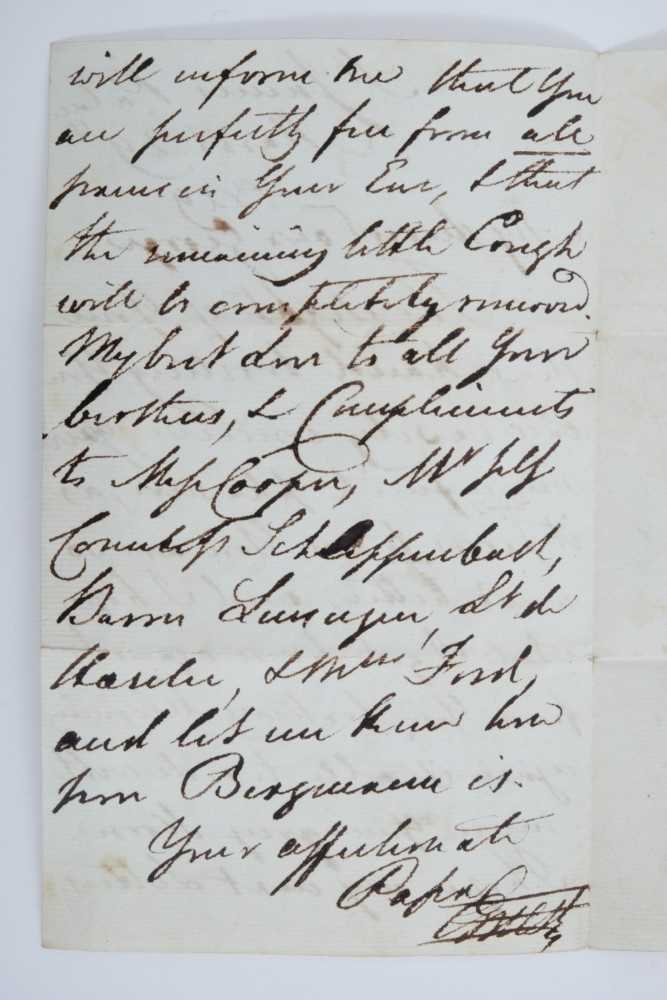 will inform me that You
are perfectly free from all
pain in Your Ear, & that
the remaining little Cough
will be completely removed.
My best Love to all Your
brothers, & Compliments
to Miss Cooper, Mr
Countess
Baron St de
& Mrs Ford,
and let me know how
poor is.
Your affectionate
Papa